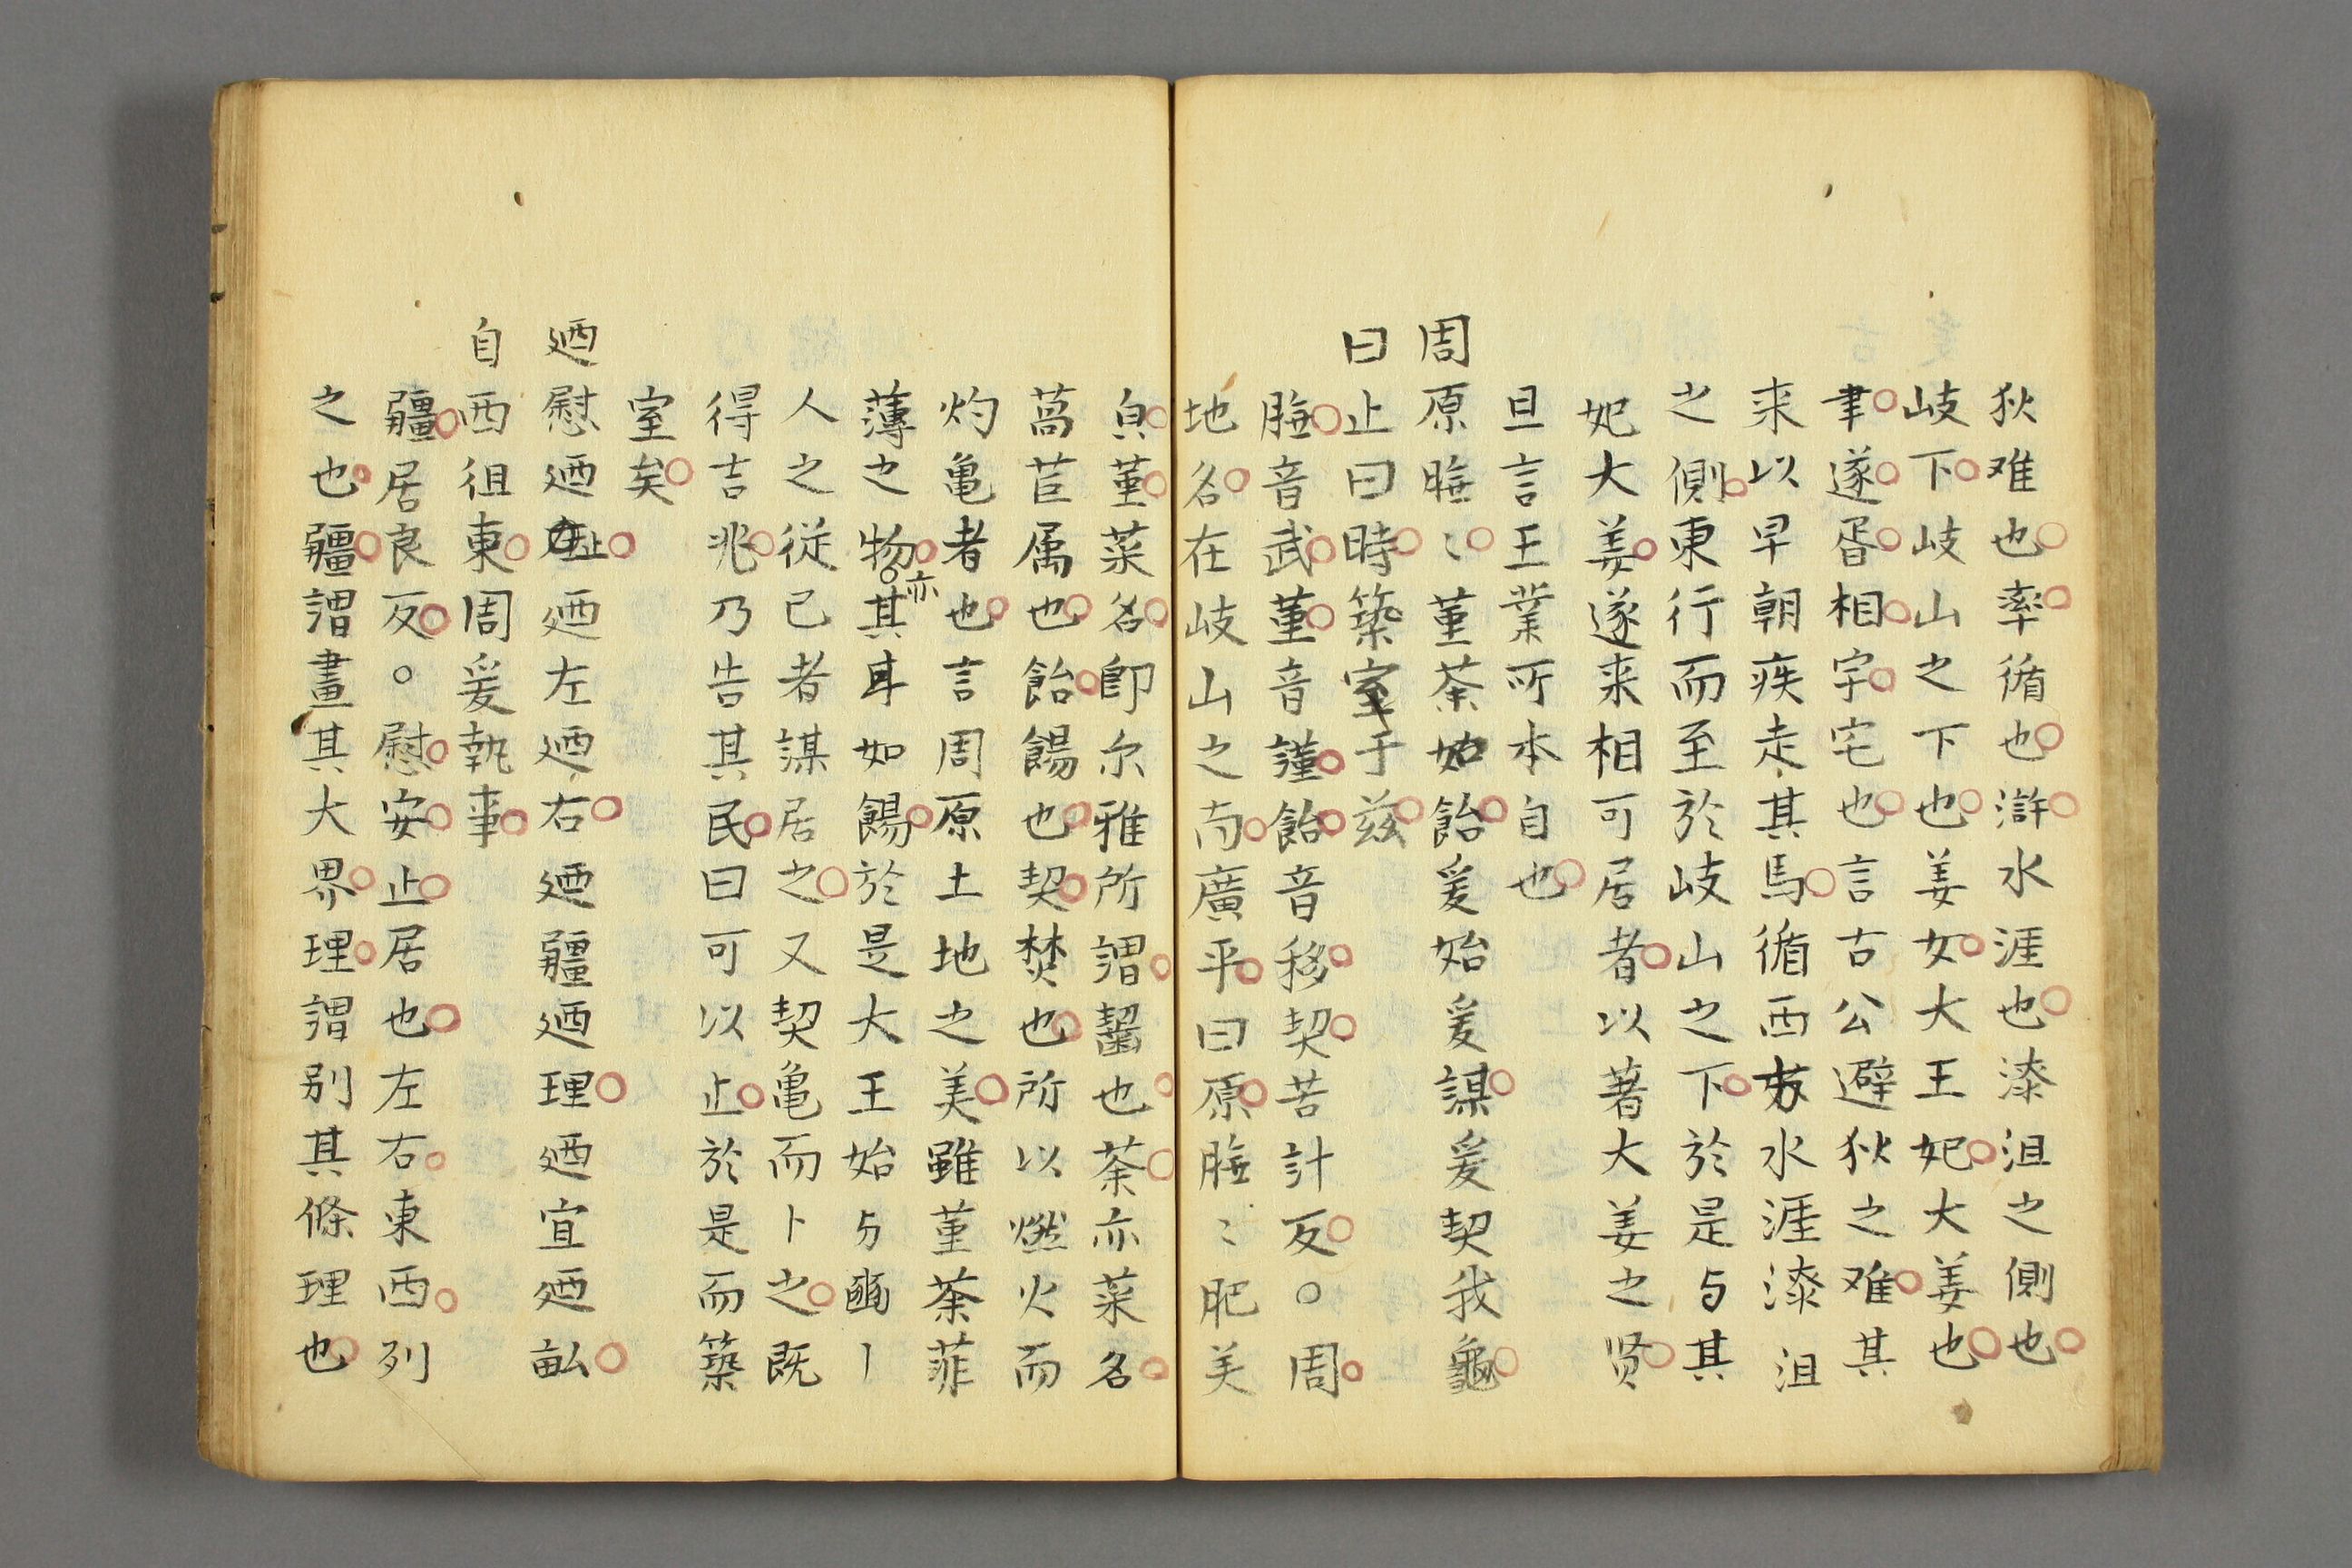 狄难也率循也滸水涯也漆沮之側也
岐下岐山之下也姜女大王妃大姜也
聿遂胥相宇宅也言古公避狄之难其
来以早朝疾走其馬循西方水涯漆沮
之側東行而至於岐山之下於是与其
妃大姜遂来相可居者以著大姜之贤
旦言王業所本自也
周原膴〻堇荼如飴爰始爰謀爰契我龜
曰止曰時築室于兹
膴音武堇音謹飴音移契苦計反○周
地名在岐山之南廣平曰原膴〻肥美
皃堇菜名即尔雅所謂齧也荼亦菜名
萵苣属也飴餳也契焚也所以燃火而
灼亀者也言周原土地之美雖堇荼菲
薄之物○其亦耳如餳於是大王始与豳丨
人之從已者謀居之又契亀而卜之既
得吉兆乃告其民曰可以止於是而築
室矣
迺慰迺止迺左迺右迺疆迺理迺宣迺畝
自西徂東周爰執事
疆居良反○慰安止居也左右東西列
之也疆謂畫其大界理謂别其條理也